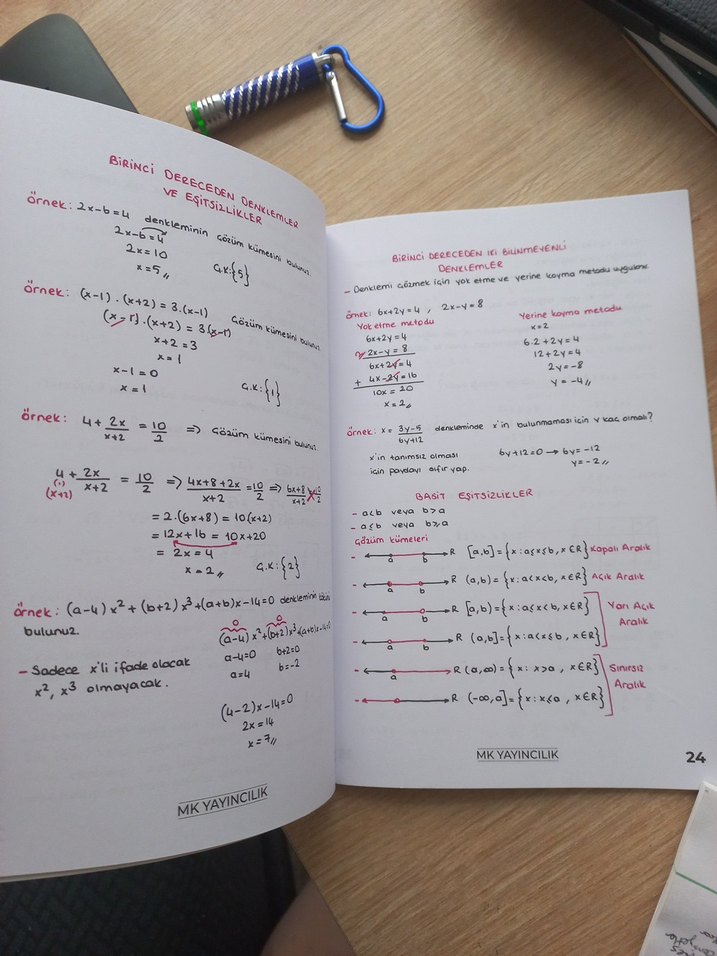 BİRİNCİ DERECEDEN DENKLEMLER
VE EŞİTSİZLİKLER
Örnek: 2x-b=4 denkleminin çözüm kümesini bulunuz.
2x-b=4
2x=10
x=5,, Ç.K:{5}
Örnek: (x-1).(x+2)=3.(x-1) Çözüm kümesini bulunuz.
(x-1).(x+2)=3(x-1)
x+2=3
x=1
x-1=0
x=1 Ç.K:{1}
Örnek: 4+2x/x+2=10/2 => Çözüm kümesini bulunuz.
4+2x/x+2=10/2 => 4x+8+2x/x+2=10/2 => 6x+8/x+2=10/2
(1)
(x+2)
=2.(6x+8)=10(x+2)
=12x+16=10x+20
=2x=4
x=2,, Ç.K:{2}
Örnek: (a-4)x²+(b+2)x³+(a+b)x-14=0 denkleminin
bulunuz.
0 0
(a-4)x²+(b+2)x³+(a+b)x-14=0
- Sadece x'li ifade olacak
x², x³ olmayacak.
a-4=0 b+2=0
a=4 b=-2
(4-2)x-14=0
2x=14
x=7,,
MK YAYINCILIK
BİRİNCİ DERECEDEN İKİ BİLİNMEYENLİ
DENKLEMLER
- Denklemi çözmek için yok etme ve yerine koyma metodu uygulanır.
Örnek: 6x+2y=4 , 2x-y=8
Yok etme metodu
6x+2y=4
2/ 2x-y=8
6x+2y=4
+ 4x-2y=16
10x=20
x=2,,
Yerine koyma metodu
x=2
6.2+2y=4
12+2y=4
2y=-8
y=-4,,
Örnek: x=3y-5/6y+12 denkleminde x'in bulunmaması için y kaç olmalı?
x'in tanımsız olması
için paydayı sıfır yap.
6y+12=0→6y=-12
y=-2,,
BASİT EŞİTSİZLİKLER
- a<b veya b>a
- a≤b veya b≥a
Çözüm kümeleri
- a b R [a,b]={x:a≤x≤b, x∈R} Kapalı Aralık
- a b R (a,b)={x:a<x<b, x∈R} Açık Aralık
- a b R [a,b)={x:a≤x<b, x∈R} Yarı Açık
Aralık
- a b R (a,b]={x:a<x≤b, x∈R}
- a R (a,∞)={x: x>a, x∈R} Sınırsız
Aralık
- a R (-∞,a]={x:x≤a, x∈R}
MK YAYINCILIK
24